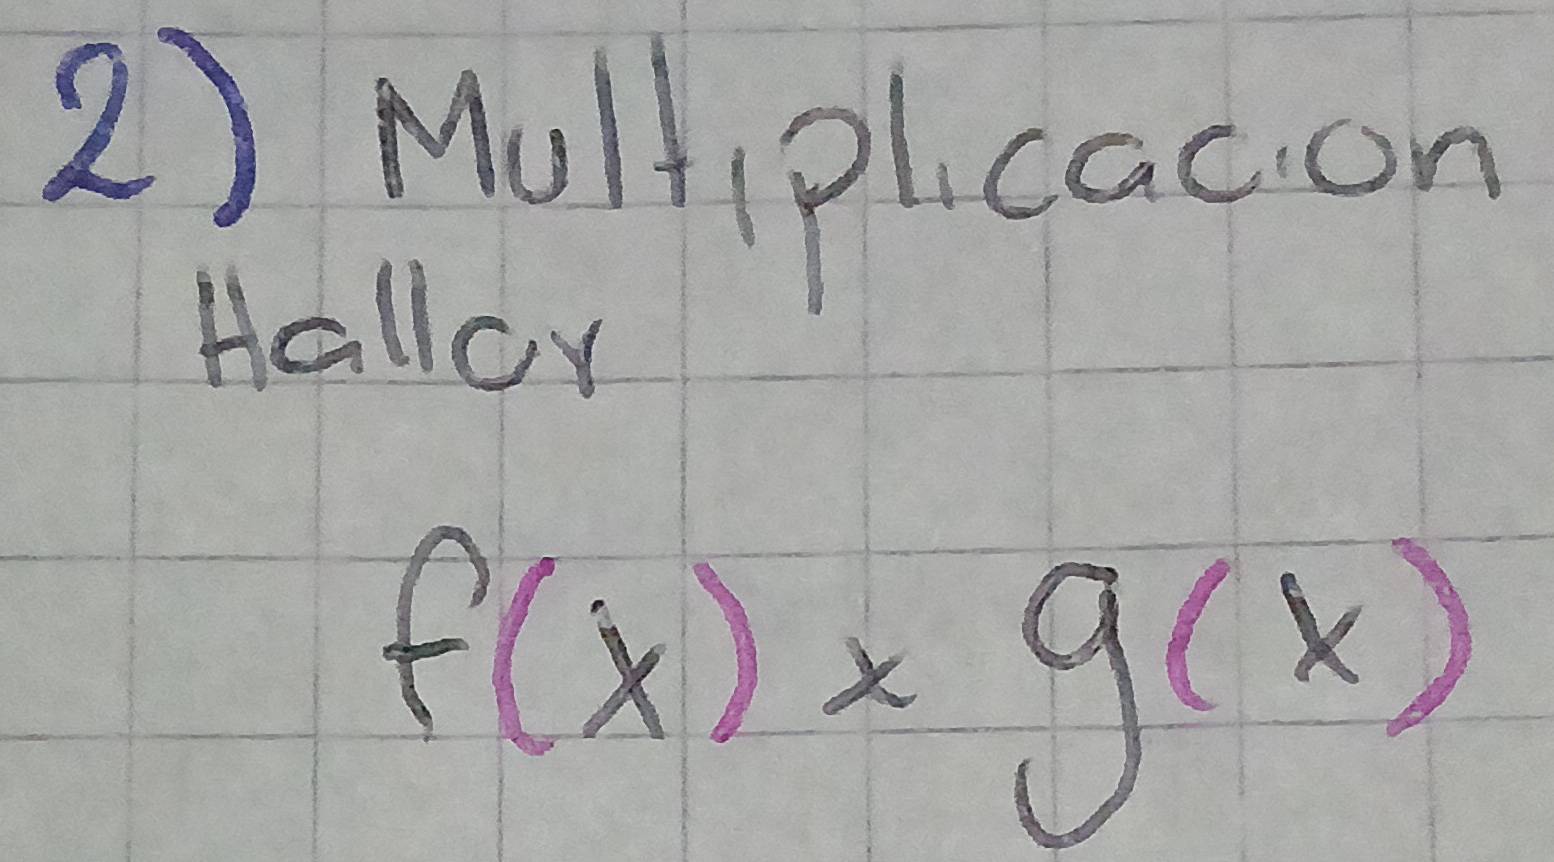 2) Multiplicacion
Hallar
f(x) x g(x)